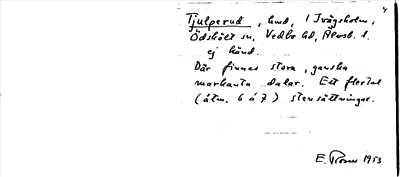 4
Tjulperud, hmd, i Ivägsholm,
Ödskölt sn, Vedbo hd, Älvsb. l.
ej känd.
Där finnes stora, ganska
markanta dalar. Ett flertal
(åtm. 6 ó 7) stensättningar.
E. 1953